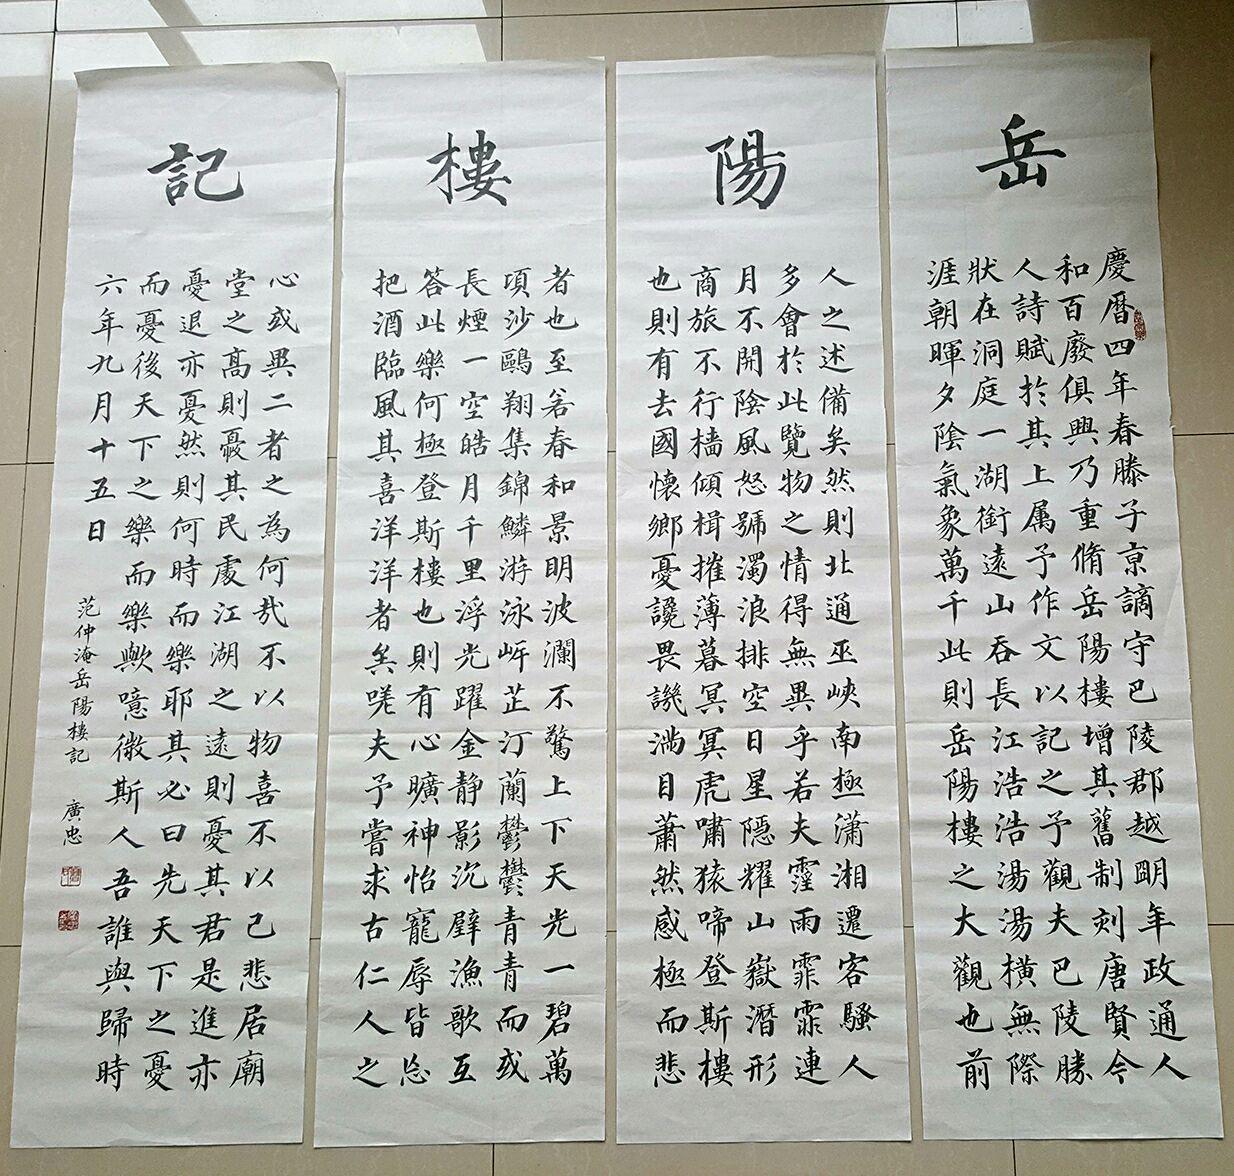 岳
慶暦四年春滕子京謫守巴陵郡越明年政通人
和百廢俱興乃重脩岳陽樓增其舊制刻唐賢今
人詩賦於其上属予作文以記之予觀夫巴陵勝
狀在洞庭一湖銜遠山吞長江浩浩湯湯橫無際
涯朝暉夕陰氣象萬千此則岳陽樓之大觀也前
陽
人之述備矣然則北通巫峽南極瀟湘遷客騷人
多會於此覽物之情得無異乎若夫霪雨霏霏連
月不開陰風怒號濁浪排空日星隱耀山嶽潛形
商旅不行檣傾楫摧薄暮冥冥虎嘯猿啼登斯樓
也則有去國懷鄉憂讒畏譏滿目蕭然感極而悲
樓
者也至若春和景明波瀾不驚上下天光一碧萬
頃沙鷗翔集錦鱗游泳岸芷汀蘭鬱鬱青青而或
長煙一空皓月千里浮光躍金静影沉璧漁歌互
答此樂何極登斯樓也則有心曠神怡寵辱皆忘
把酒臨風其喜洋洋者矣嗟夫予嘗求古仁人之
記
心或異二者之為何哉不以物喜不以己悲居廟
堂之高則憂其民處江湖之遠則憂其君是進亦
憂退亦憂然則何時而樂耶其必曰先天下之憂
而憂後天下之樂而樂歟噫微斯人吾誰與歸時
六年九月十五日
范仲淹岳陽樓記 廣忠